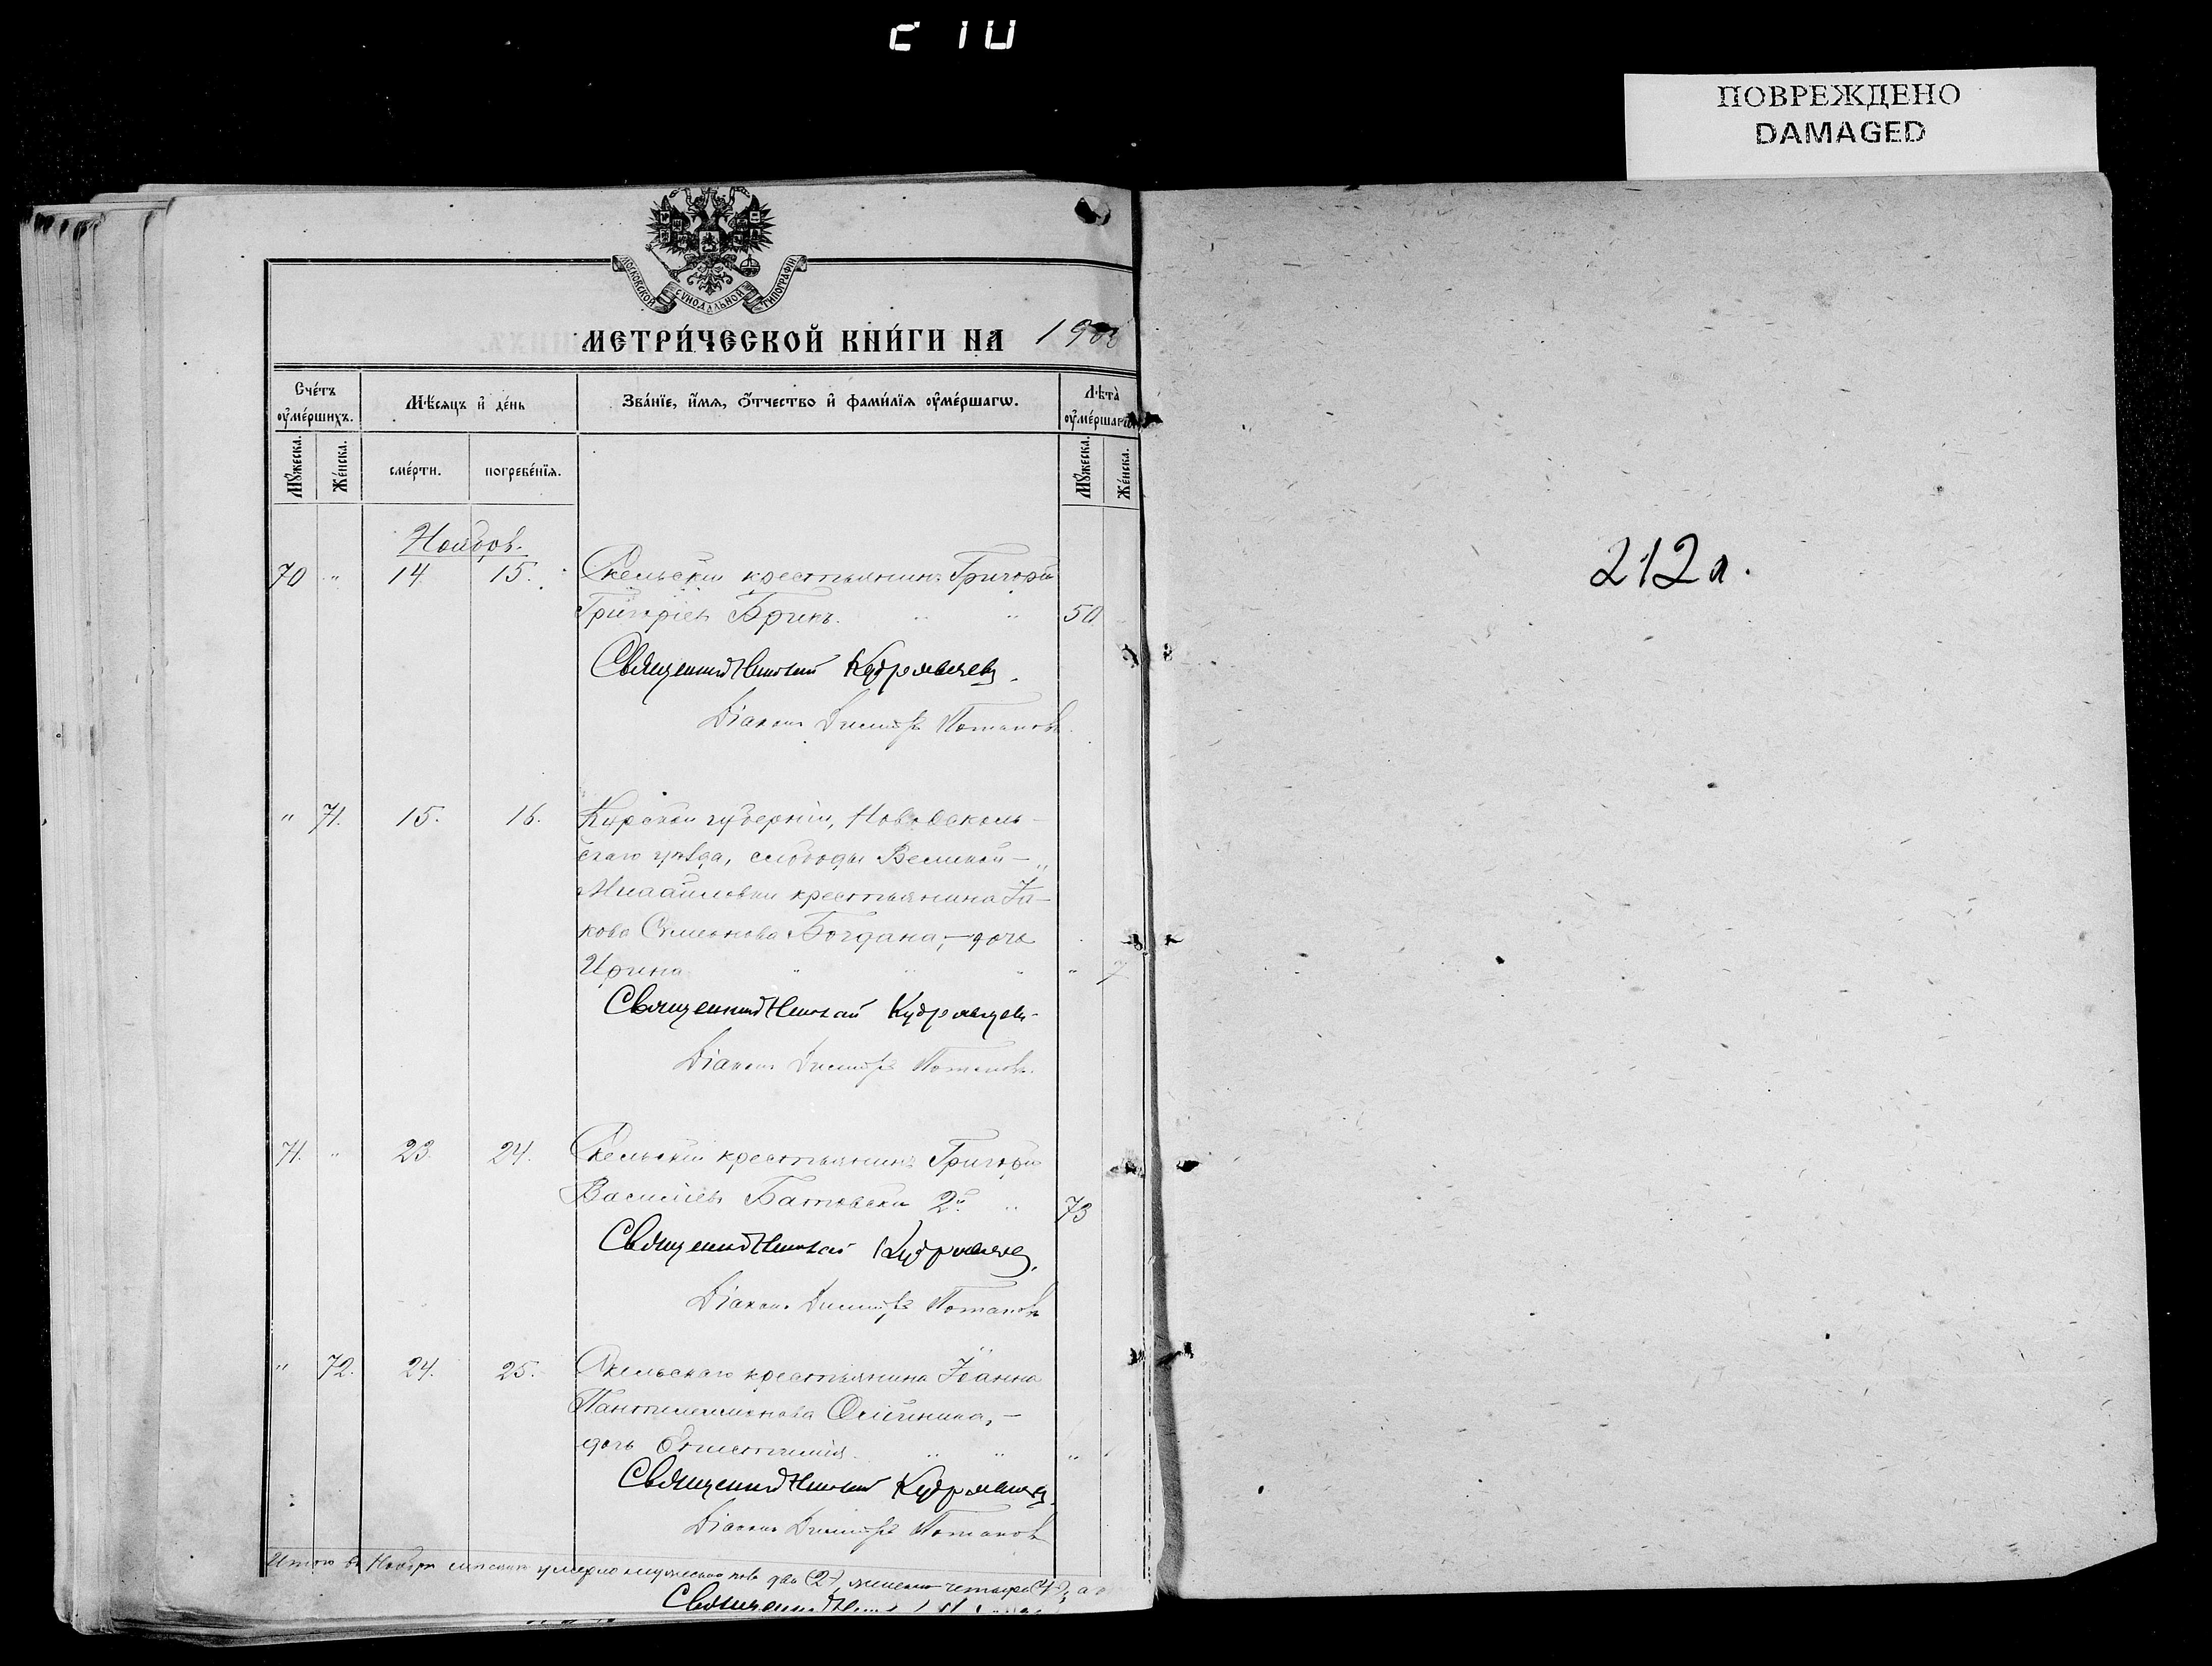 ПОВРЕЖДЕНО
DAMAGED
МОСКОВСКОЙ СѴНОДАЛЬНОЙ ТИПОГРАФІИ
МЕТРИ́ЧЕСКОЙ КНИ́ГИ НА 190
Сче́тъ оу҆ме́ршихъ.
Мѣ́сяцъ и҆ де́нь
Зва́нїе, и҆́мѧ, ѻ҆́тчество и҆ фами́лїѧ оу҆ме́ршагѡ.
Лѣта̀ оу҆ме́ршагѡ
Мꙋ́жеска.
Же́нска.
сме́рти.
погребе́нїѧ.
Мꙋ́жеска.
Же́нска.
Ноябрь.
70 " 14 15. Скельскій крестьянинъ Григорій
Григоріевъ Бринъ. " " 50
Священникъ Николай Кудрявцевъ.
Діаконъ Димитрій Потаповъ.
" 71. 15. 16. Курской губерніи, Новоосколь-
скаго уѣзда, слободы Великой-
Михайловки крестьянина Іа-
кова Симеонова Богдана,-дочь
Ирина " " " " 7
Священникъ Николай Кудрявцевъ
Діаконъ Димитрій Потаповъ.
71. " 23. 24. Скельскій крестьянинъ Григорій
Васильевъ Батовскій 2й " 73
Священникъ Николай Кудрявцевъ.
Діаконъ Димитрій Потаповъ
" 72. 24. 25. Скельскаго крестьянина Іоанна
Пантелеимонова Олійника,-
дочь " " "
Священникъ Николай Кудрявцевъ.
Діаконъ Димитрій Потаповъ
Итого въ Ноябрѣ мѣсяцѣ умерло мужеска пола два (2), женска четыре (4), а
Священникъ
212 л.